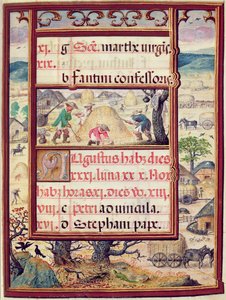 xi. g Scē. marthe virgis.
xix.
b fantini confessoris.
Augustus habz dies
xxxi. luna xxx. Nox
habz horas xi, dies vo xiii.
viii. c petri ad uincula.
xvi. d Stephani pape.